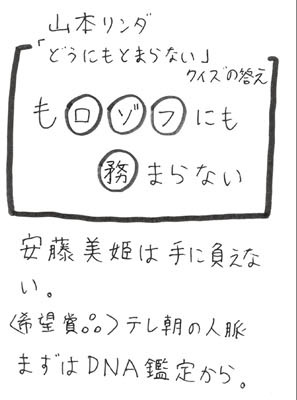 山本リンダ
「どうにもとまらない」
クイズの答え
もロゾフにも
務まらない
安藤美姫は手に負えな
い。
〈希望賞〉テレ朝の人脈
まずはDNA鑑定から。